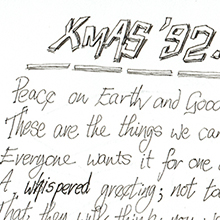 XMAS '92.
Peace on Earth and Good
These are the things we ca
Everyone wants it for one
A whispered greeting; not to
That then will things